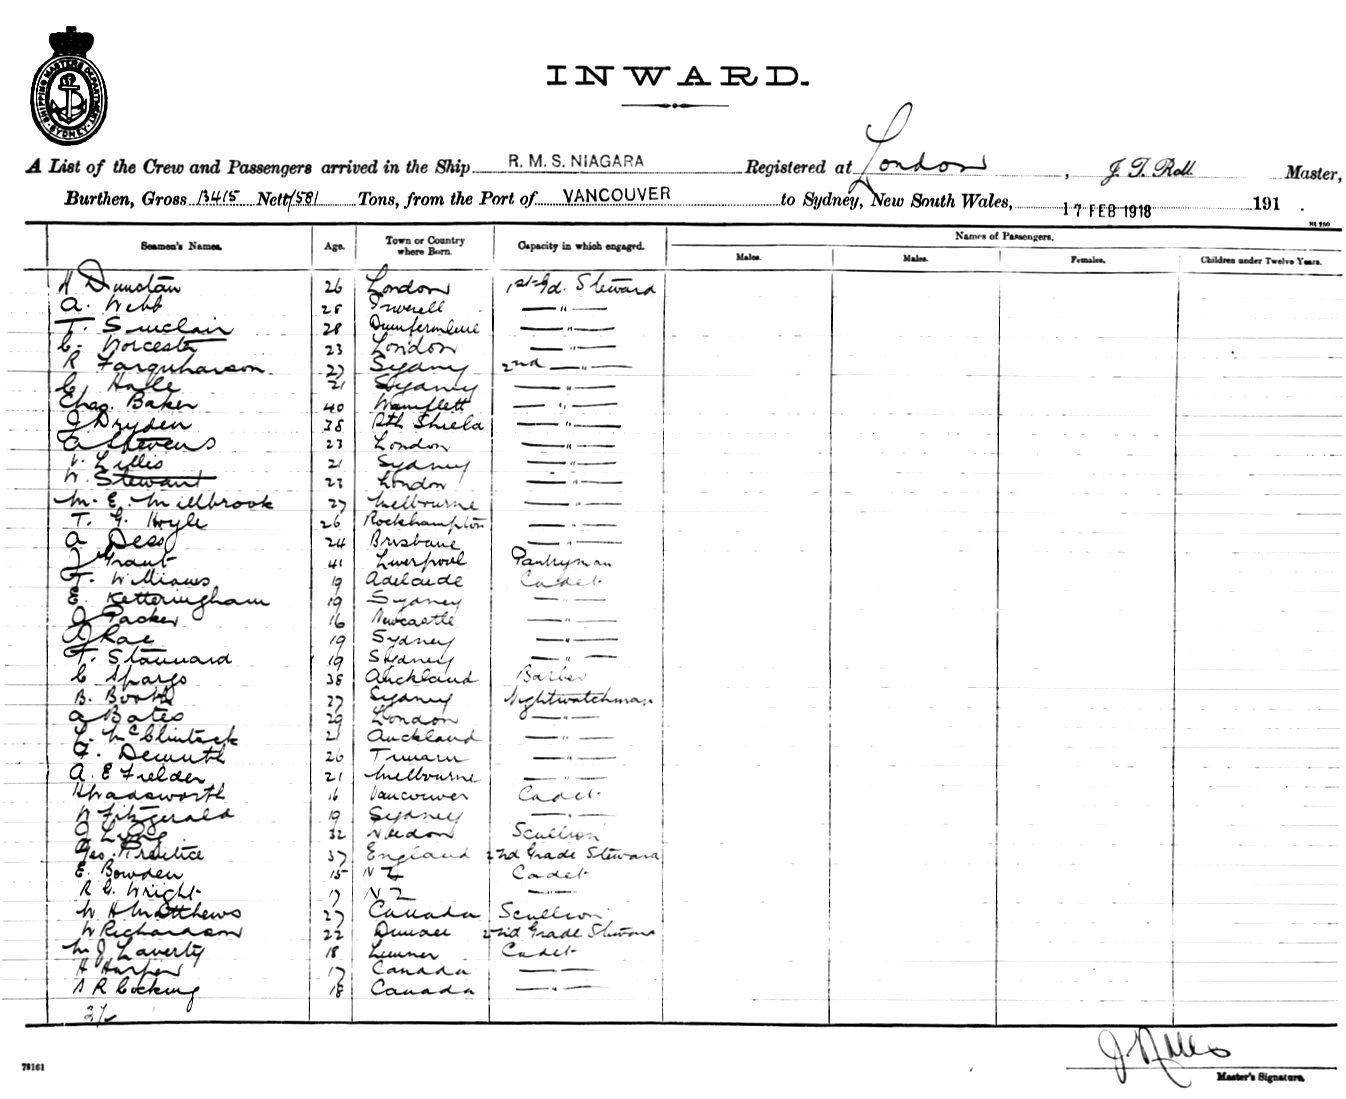 SHIPPING MASTERS DEPARTMENT SYDNEY
INWARD.
A List of the Crew and Passengers arrived in the Ship R. M. S. NIAGARA Registered at London, J. T. Roll. Master,
Burthen, Gross 13415 Nett 7581 Tons, from the Port of VANCOUVER to Sydney, New South Wales, 17 FEB 1918 191 .
Seamen's Names. Age. Town or Country where Born. Capacity in which engaged. Names of Passengers.
Males. Males. Females. Children under Twelve Years.
H Dunstan 26 London 1st Gd. Steward
A. Webb 28 Inverell — " —
T. Sinclair 28 Dumfermline — " —
C. Worcester 23 London — " —
R Farquharson 27 Sydney 2nd — " —
C Halle 21 Sydney — " —
Chas. Baker 40 Wainflett — " —
J Dryden 38 Nth Shield — " —
A Stevens 23 London — " —
V. Lillis 21 Sydney — " —
W. Stewart 23 London — " —
M. E. Millbrook 27 Melbourne — " —
T. G. Hoyle 26 Rockhampton — " —
A Dess 24 Brisbane — " —
J Grant 41 Liverpool Pantryman
F. Williams 19 Adelaide Cadet
E. Ketteringham 19 Sydney — " —
J Packer 16 Newcastle — " —
A Rae 19 Sydney — " —
F. Stannard 19 Sydney — " —
C Spargo 38 Auckland Barber
B. Booth 27 Sydney Nightwatchman
A Bates 29 London — " —
L. McClintock 21 Auckland — " —
F. Demuth 26 Timaru — " —
A. E Fielder 21 Melbourne — " —
H Wadsworth 16 Vancouver Cadet
W Fitzgerald 19 Sydney — " —
J Long 32 Scullion
Geo. Prentice 37 England 2nd Grade Steward
E. Bowden 15 N Z Cadet
R G. Wright 17 N Z — " —
W H Matthews 27 Canada Scullion
W Richardson 22 Dundee 2nd Grade Steward
M J Laverty 18 Cadet
H Harper 17 Canada — " —
R Cocking 18 Canada — " —
37
79161
Master's Signature.